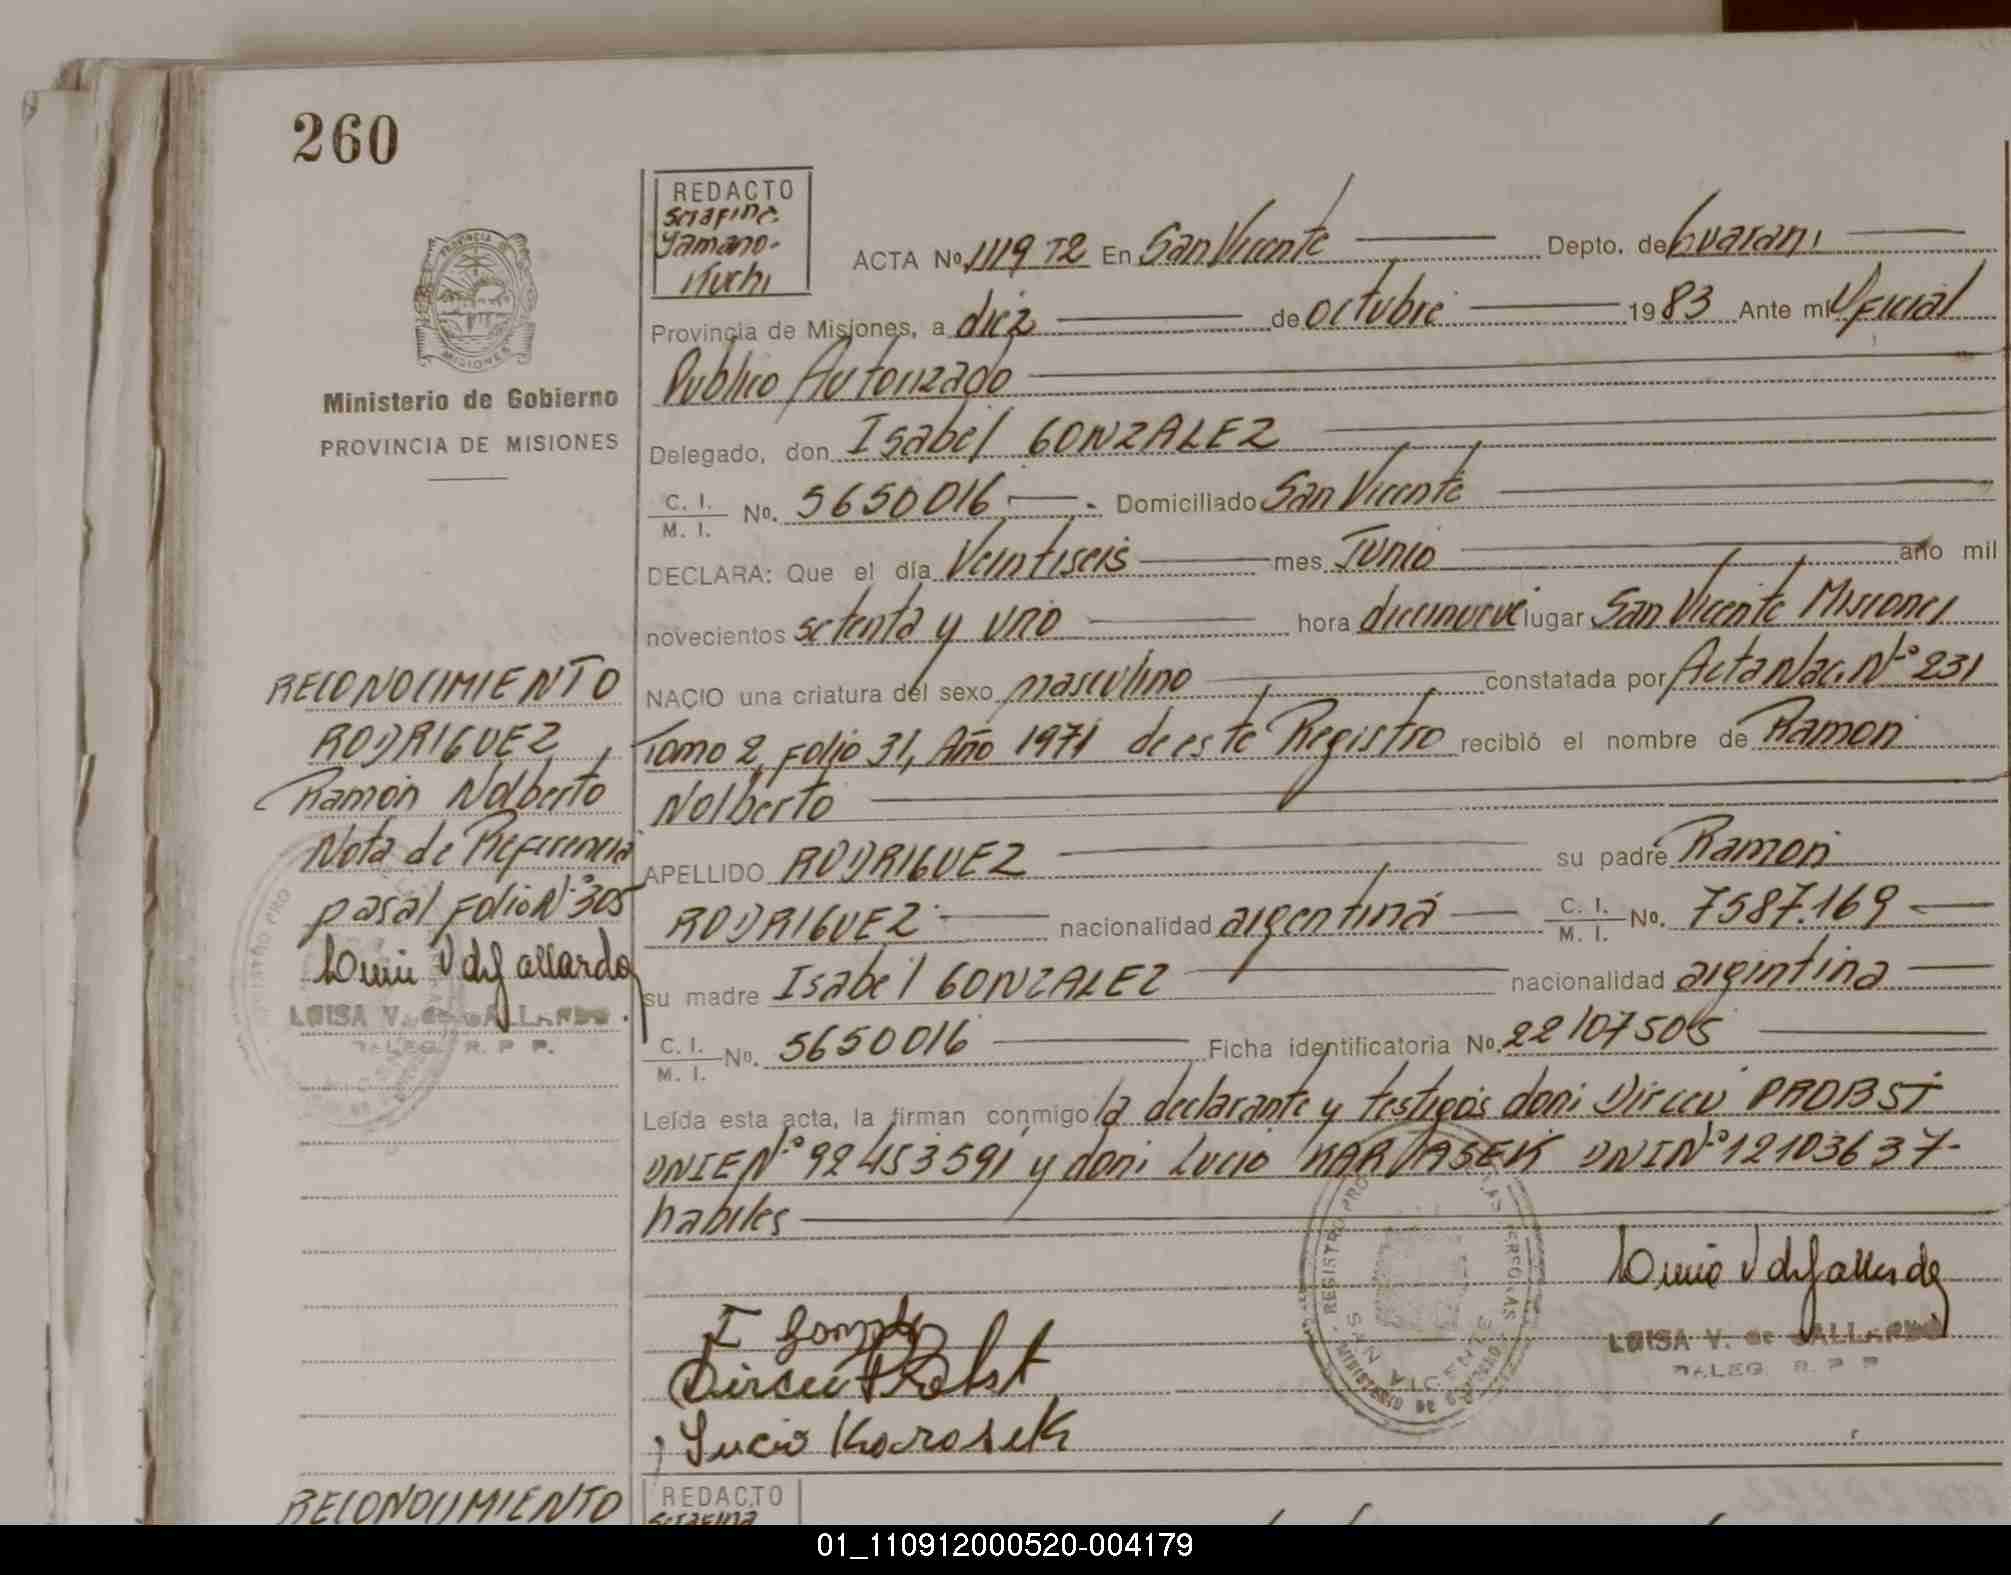 260
REDACTO
Serafina
Yamano-
iuchi
PROVINCIA DE
MISIONES
Ministerio de Gobierno
PROVINCIA DE MISIONES
ACTA No. 1119 T2 En San Vicente Depto. de Guarani
Provincia de Misiones, a diez de octubre 1983 Ante mi Oficial
Publico Autorizado
Delegado, don Isabel GONZALEZ
C. I. / M. I. No. 5650016 Domiciliado San Vicente
DECLARA: Que el día Veintiseis mes Junio año mil
novecientos setenta y uno hora diecinueve lugar San Vicente Misiones
NACIO una criatura del sexo masculino constatada por Acta Nac. Nº 231
Tomo 2, Folio 31, Año 1971 de este Registro recibió el nombre de Ramon
Nolberto
APELLIDO RODRIGUEZ su padre Ramon
RODRIGUEZ nacionalidad argentina C. I. / M. I. No. 7587.169
su madre Isabel GONZALEZ nacionalidad argentina
C. I. / M. I. No. 5650016 Ficha identificatoria No. 22107505
Leída esta acta, la firman conmigo la declarante y testigos don: Dirceu PROBST
DNIE Nº 92453591 y don: Lucio KARVASEK DNI Nº 12103637-
habiles
RECONOCIMIENTO
RODRIGUEZ
Ramon Nolberto
Nota de Referencia
pasa al Folio Nº 305
LUISA V. de GALLARDO
DELEG. R. P. P.
I Gonzalez
Dirceu Probst
Lucio Karosek
REGISTRO PRO LAS PERSONAS
SAN VICENTE
MINISTERIO DE GOBIERNO
LUISA V. de GALLARDO
DELEG. R. P. P.
RECONOCIMIENTO
REDACTO
Serafina
01_110912000520-004179